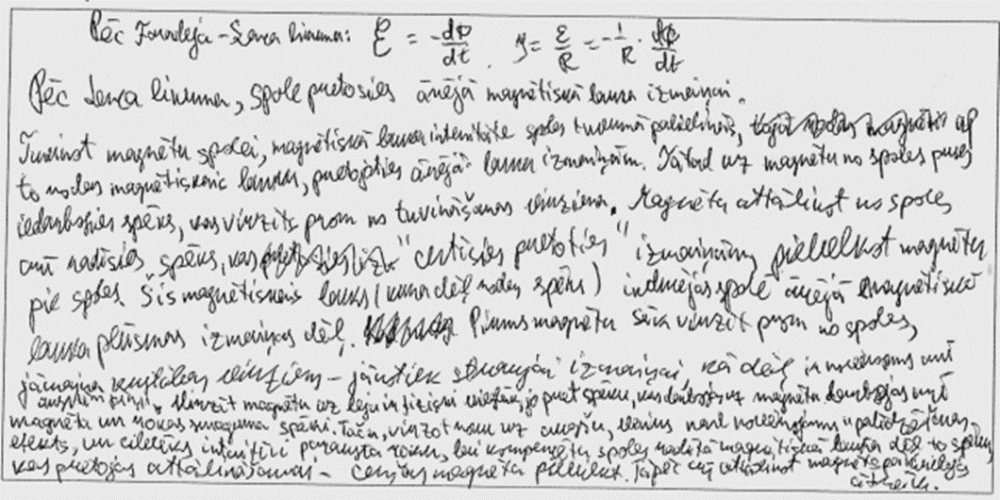 Pēc Faradeja-Lenca likuma: ℰ = -dΦ/dt. J = ℰ/R = -1/R · dΦ/dt
Pēc Lenca likuma, spole pretosies ārējā magnētiskā lauka izmaiņai.
Tuvinot magnētu spolei, magnētiskā lauka intensitāte spoles tuvumā palielinās, ap
to rodas magnētiskais lauks, pretojoties ārējā lauka izmaiņām. Tātad uz magnētu no spoles puses
iedarbosies spēks, kas virzīts prom no tuvināšanas virziena. Magnētu attālinot no spoles
arī radīsies spēks, kas "centīsies pretoties" izmaiņām pievelkot magnētu
pie spoles. Šis magnētiskais lauks (kura dēļ rodas spēks) inducējas spolē ārējā magnētiskā
lauka plūsmas izmaiņas dēļ. Pirms magnētu sāk virzīt prom no spoles,
jāmaina kustības virziens - jānotiek straujai izmaiņai kā dēļ ir
virzīt magnētu uz leju ir fiziski vieglāk, jo pret spēku, kas darbojas uz magnētu darbojas arī
magnēta un rokas smaguma spēki. Taču, virzot roku uz augšu, vairs nav novērojams "palīdzošais"
efekts, un cilvēks intuitīvi parausta roku, lai kompensētu spoles radītā magnētiskā lauka dēļ to spēku,
kas pretojas attālināšanai - cenšas magnētu pievilkt. Tāpēc arī attālinot magnētu
ātrāk.